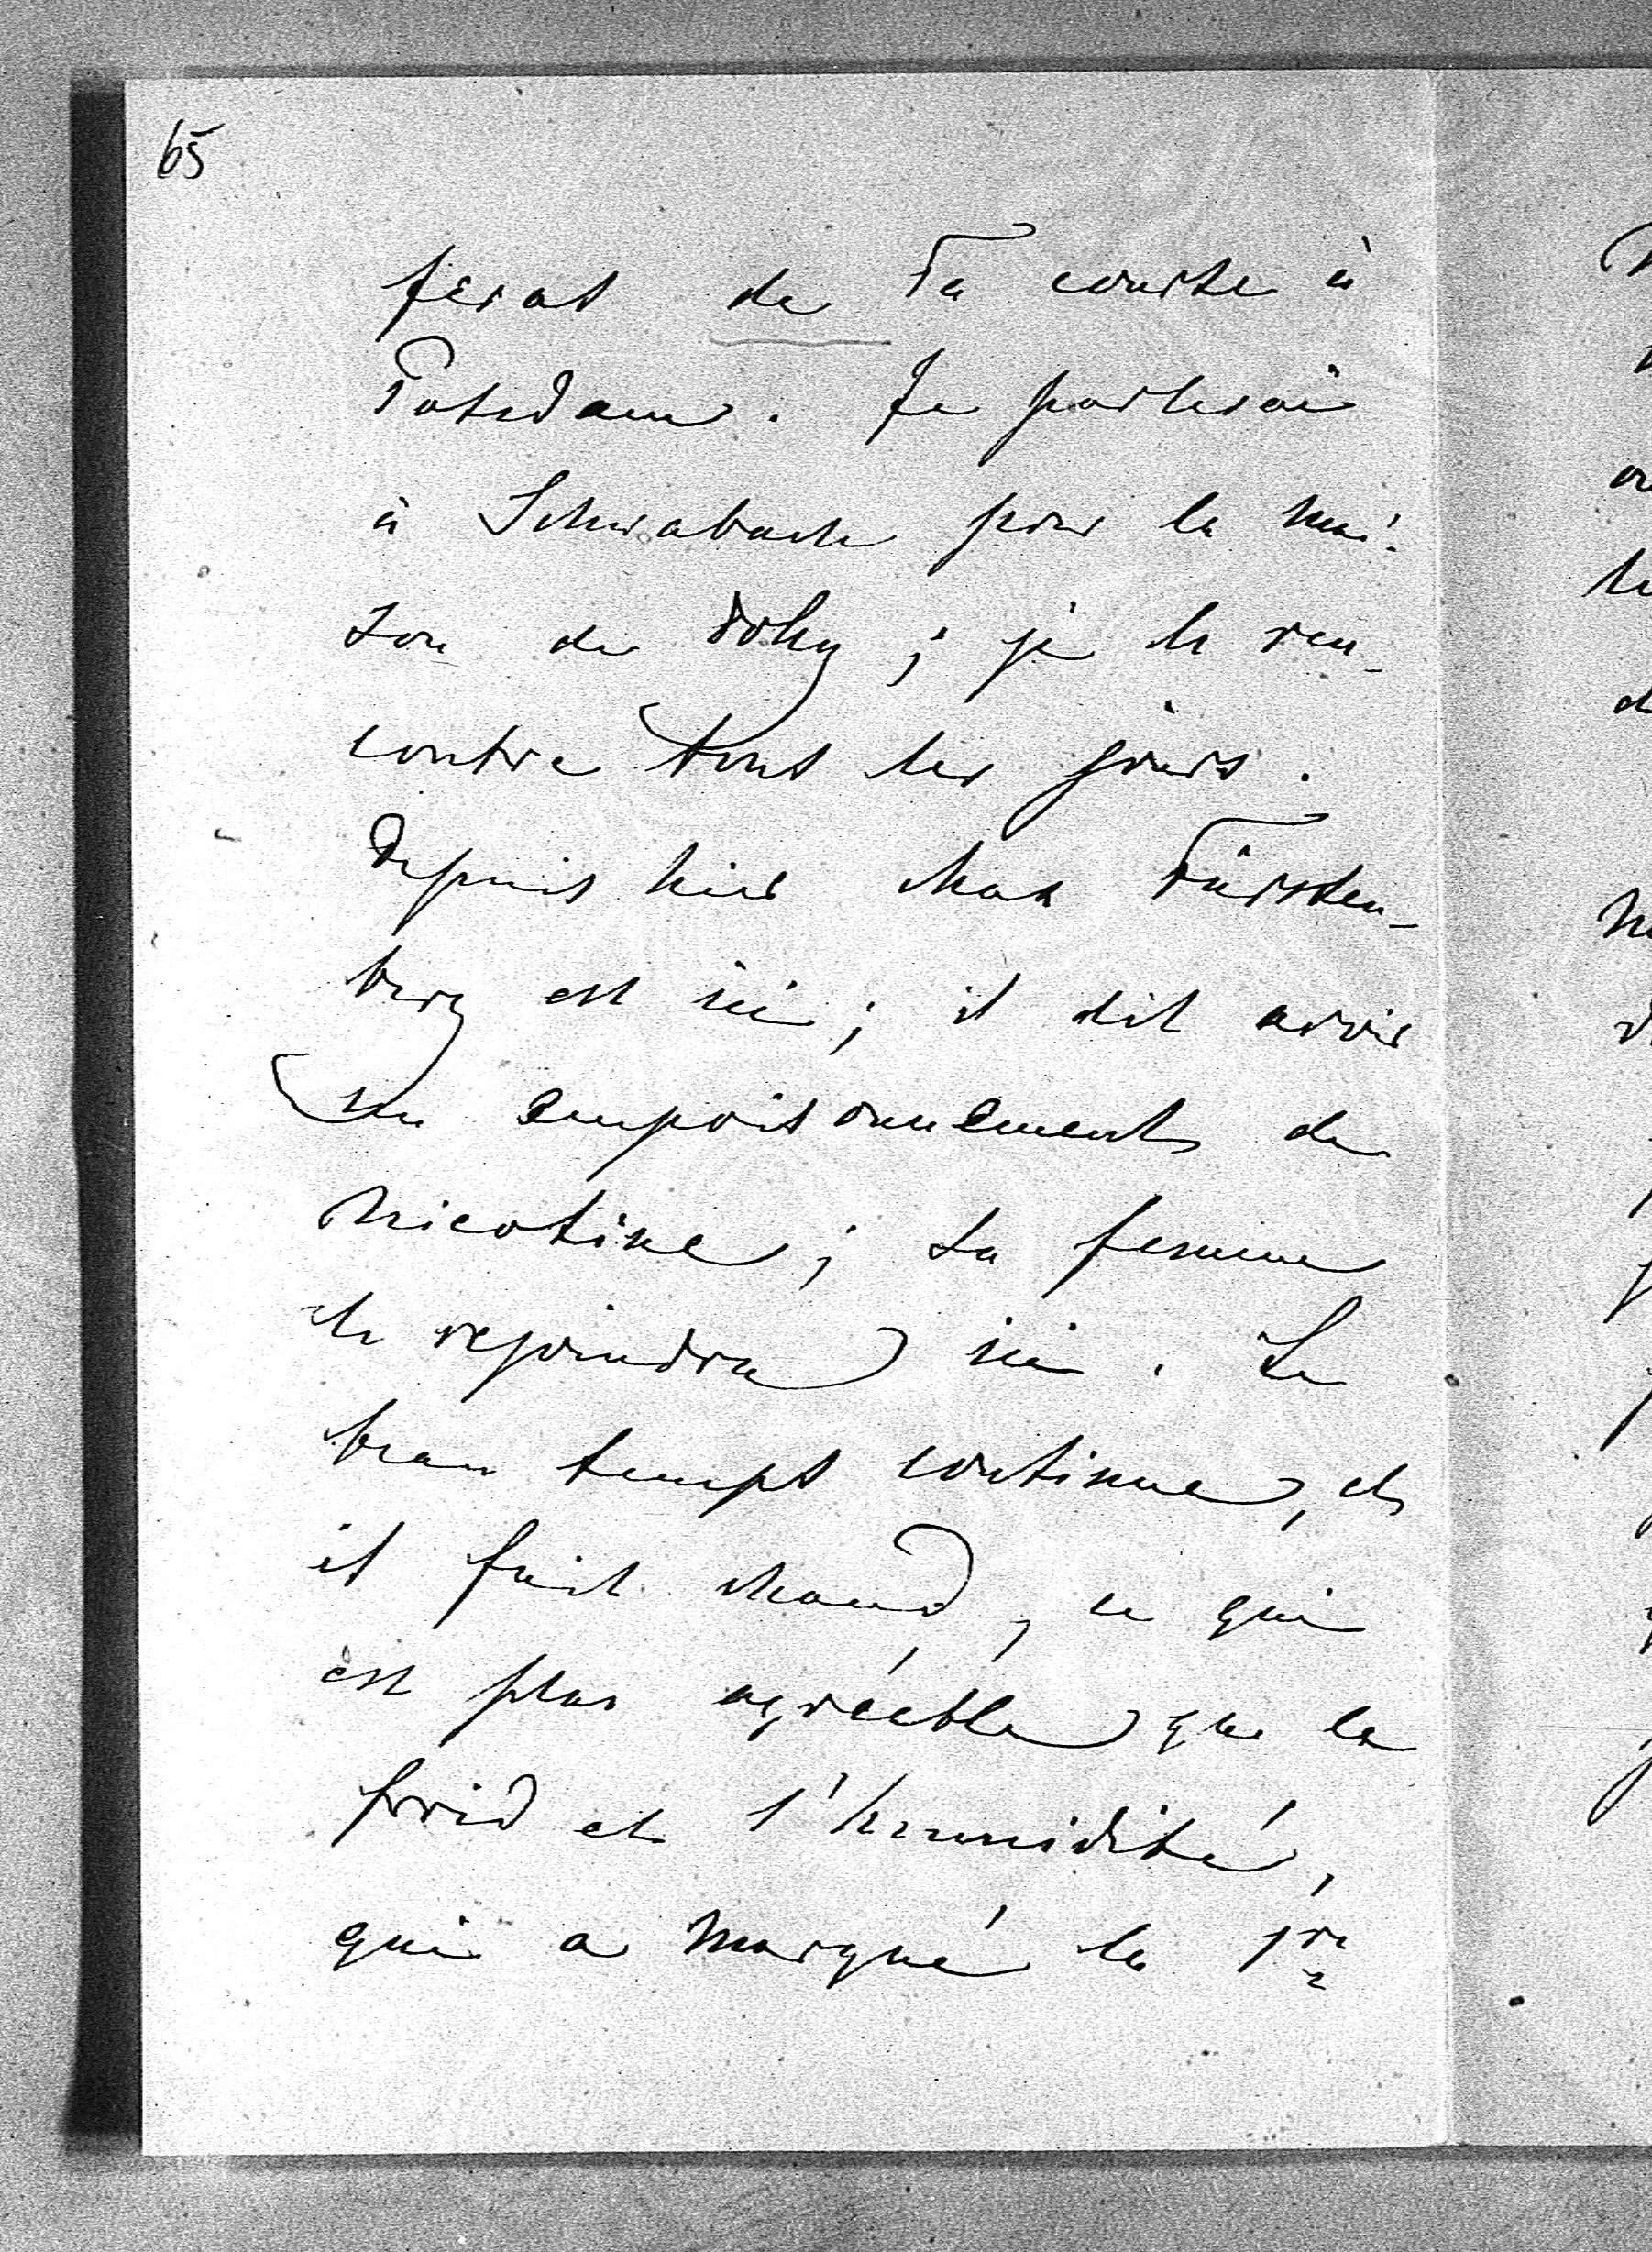 65
feras de Ta course à
Potsdam. Je parlerai
à Schwabach pour la mai-
son de Dohy; je le ren-
contre tous les jours.
Depuis hier Max Fürsten-
berg est ici; il dit avoir
un empoisonnement de
Nicotine; sa femme
le rejoindra ici. Le
beau temps continue, et
il fait chaud, ce qui
est plus agréable que le
froid et l'humidité,
qui a marqué la 1re